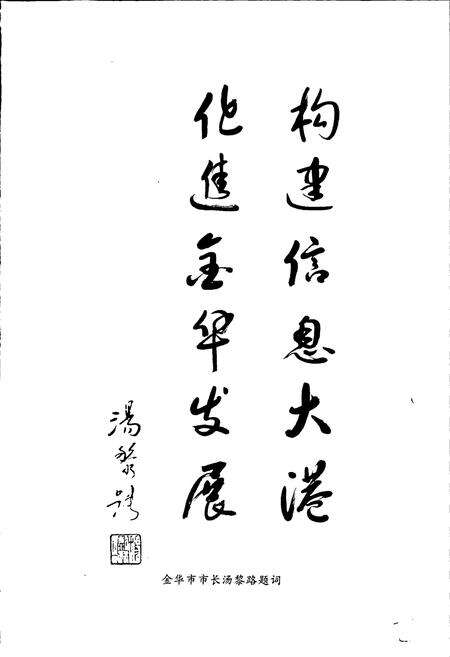 构建信息大港
促進金华发展
湯黎路
金华市市长汤黎路题词